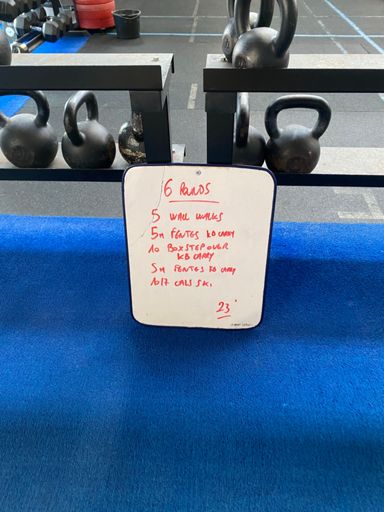 6 ROUNDS
5 WALL WALKS
5m FENTES KB CARRY
10 BOX STEP OVER
KB CARRY
5m FENTES KB CARRY
10/7 CALS SKI
23'